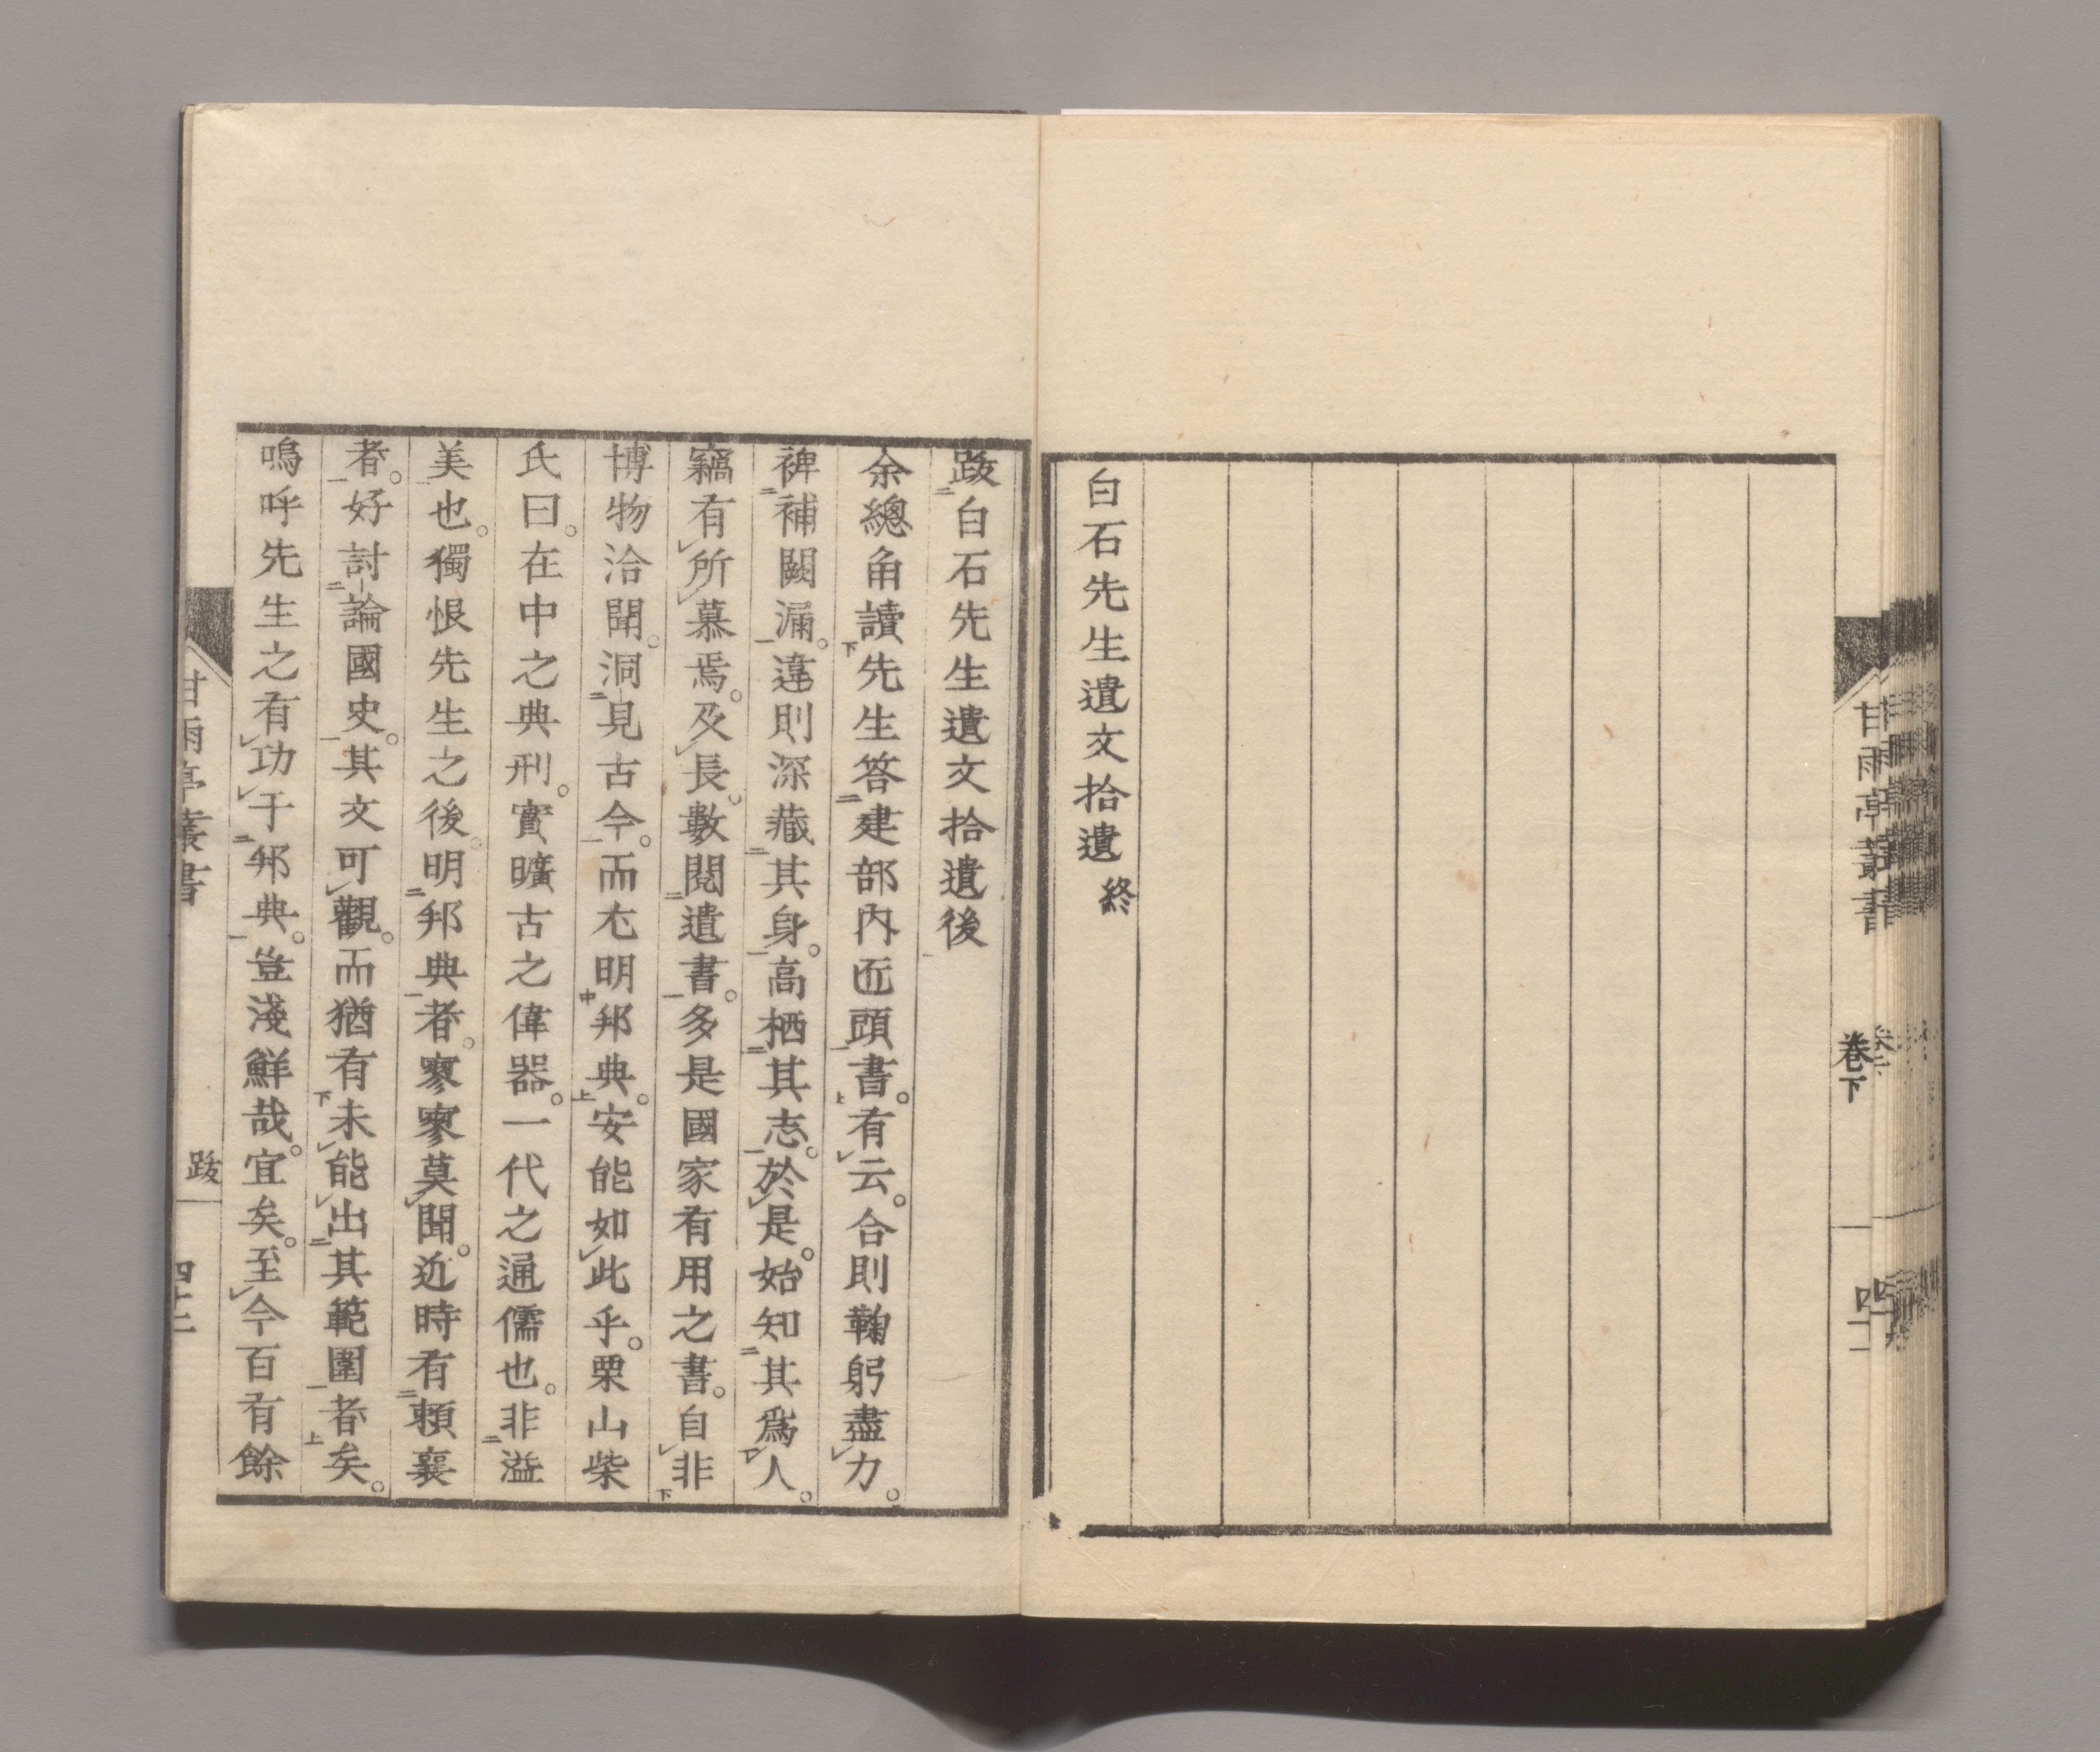 甘雨亭叢書
卷下
白石先生遺文拾遺終
跋白石先生遺文拾遺後
余總角讀先生答建部内匠頭書。有云。合則鞠躬盡力。
裨補闕漏。違則深藏其身。高栖其志。於是。始知其爲人。
竊有所慕焉。及長。數閲遺書。多是國家有用之書。自非
博物洽聞。洞見古今。而尤明邦典。安能如此乎。栗山柴
氏曰。在中之典刑。實曠古之偉器。一代之通儒也。非溢
美也。獨恨先生之後。明邦典者。寥寥莫聞。近時有賴襄
者。好討論國史。其文可觀。而猶有未能出其範圍者矣。
嗚呼先生之有功于邦典。豈淺鮮哉。宜矣。至今百有餘
甘雨亭叢書
跋
四十二